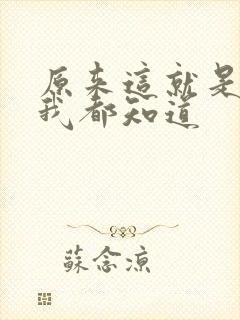 原來這就是
我都知道
蘇念涼